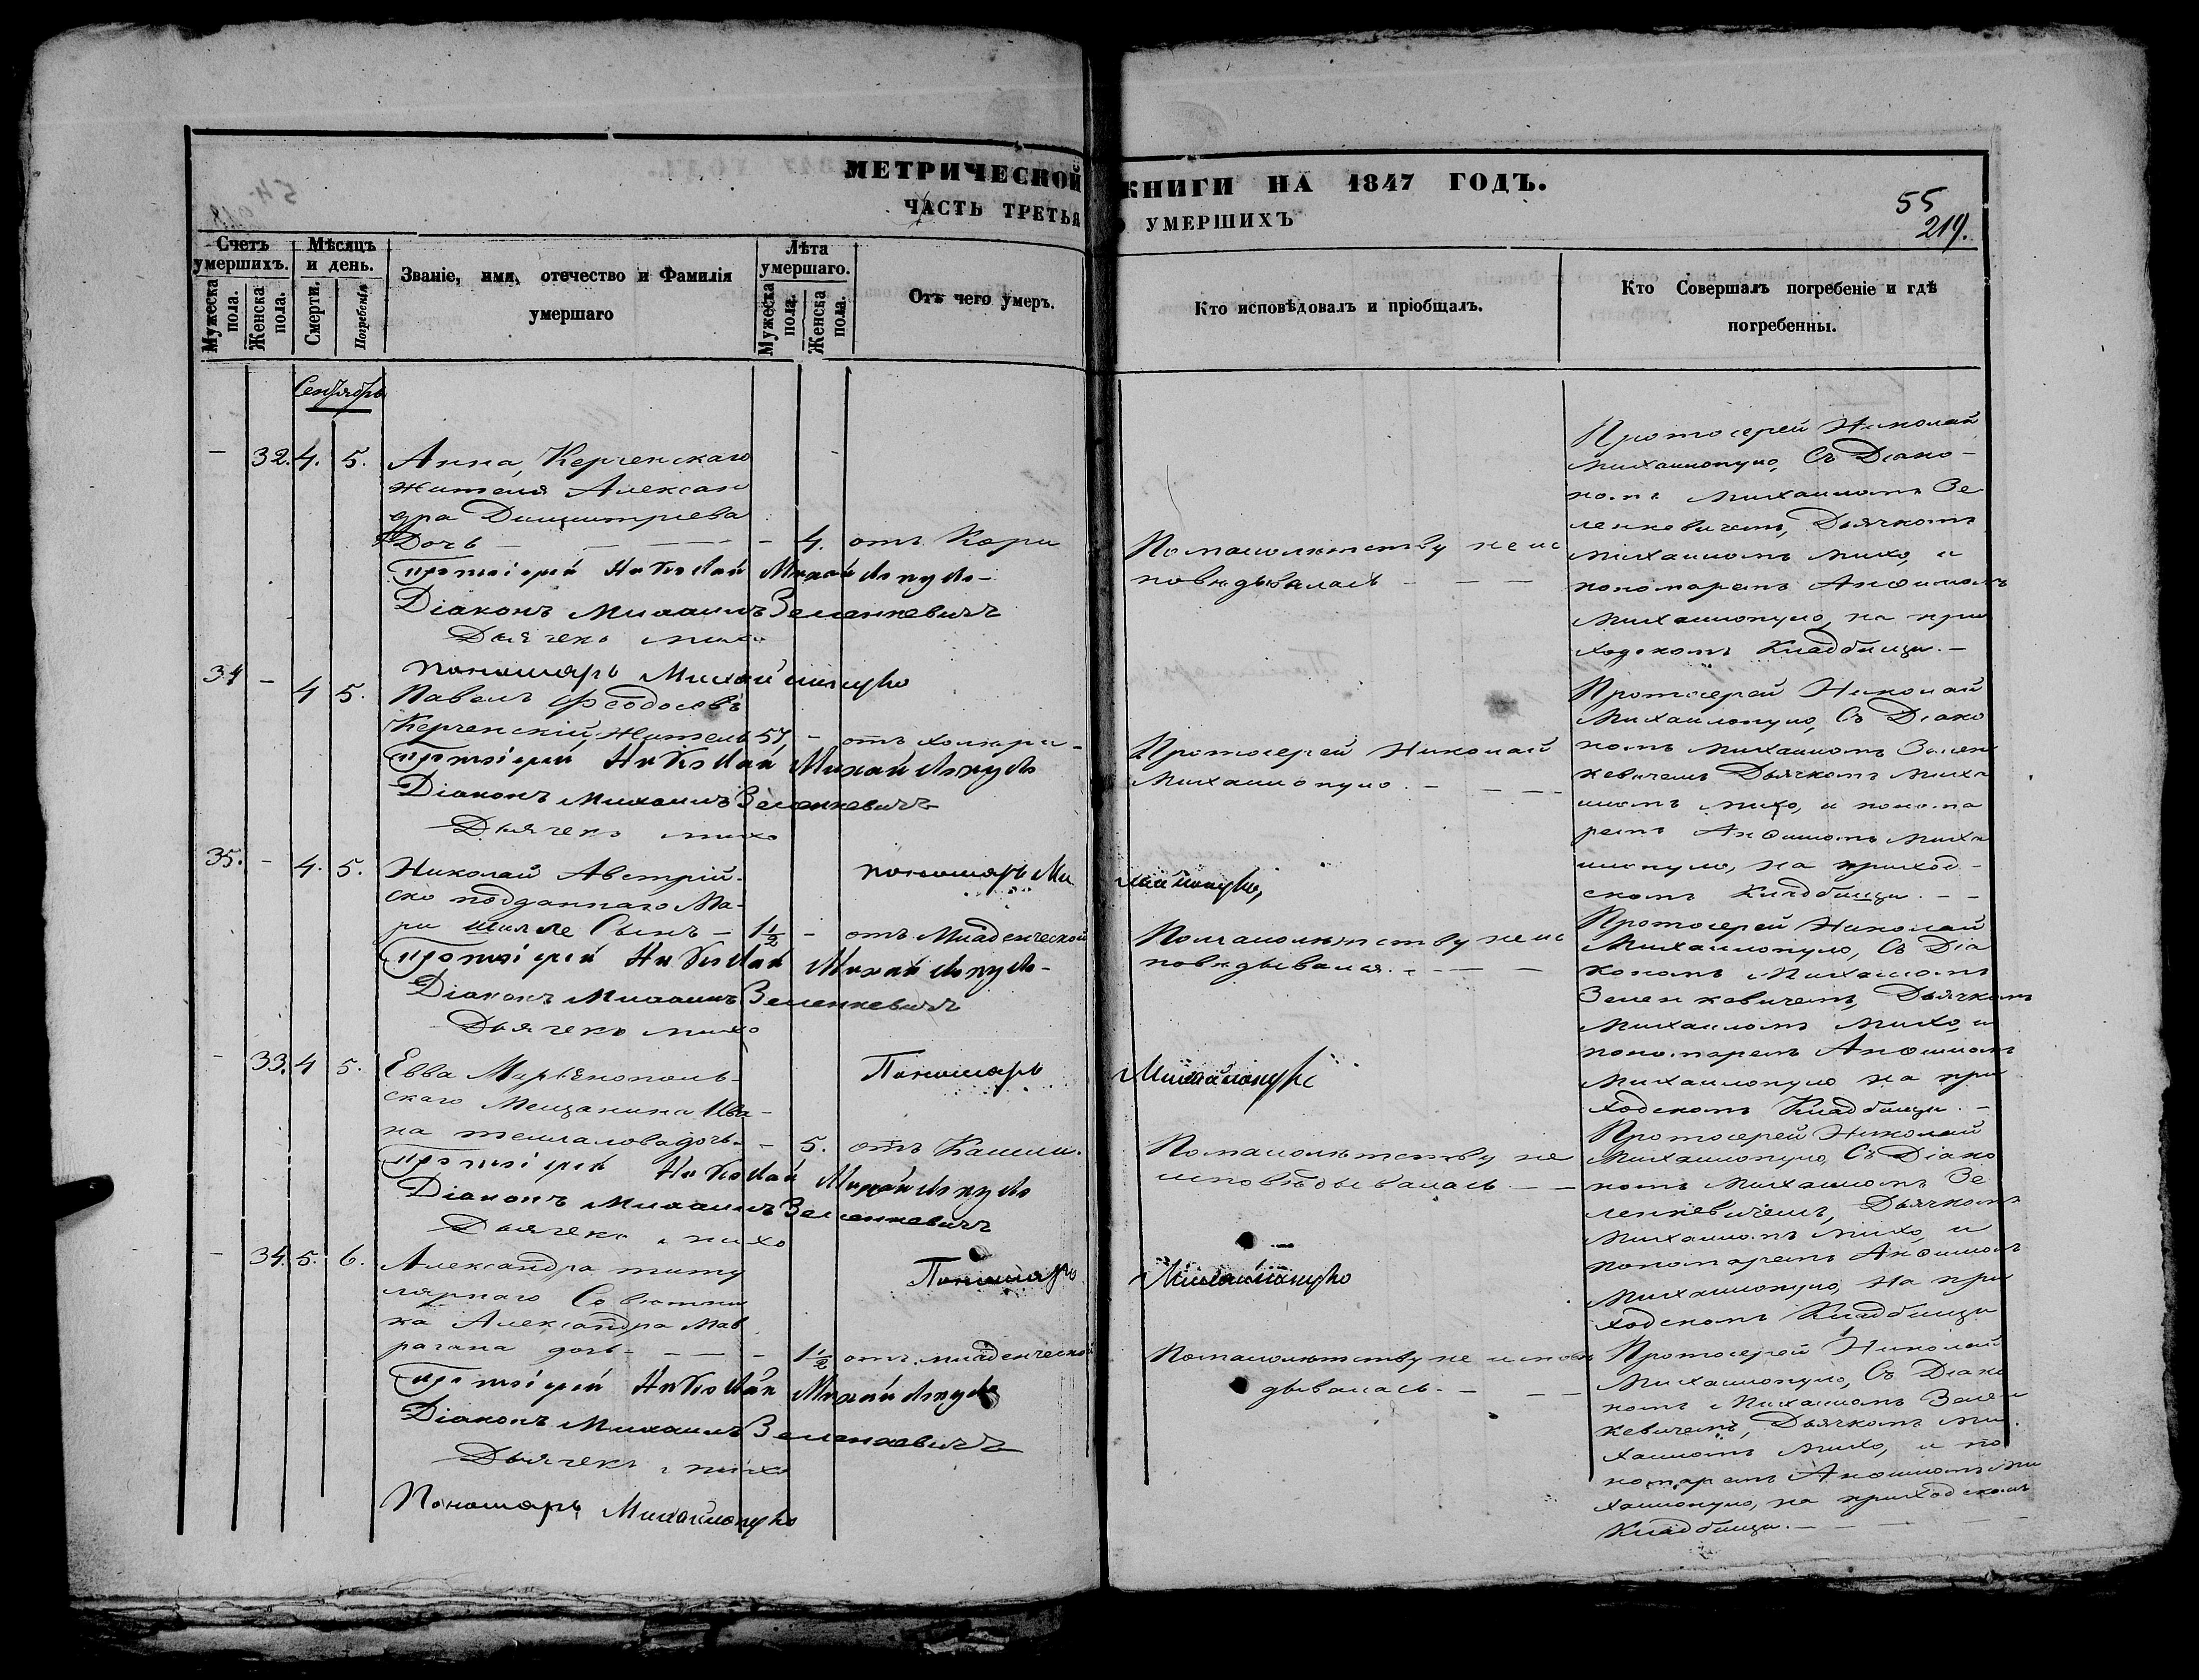 МЕТРИЧЕСКОЙ КНИГИ НА 1847 ГОДЪ.
ЧАСТЬ ТРЕТЬЯ О УМЕРШИХЪ
55
219.
Счетъ умершихъ.
Мужеска пола.
Женска пола.
Мѣсяцъ и день.
Смерти.
Погребенія
Званіе, имя, отечество и Фамилія
умершаго
Лѣта умершаго.
Мужеска пола.
Женска пола.
Отъ чего умеръ.
Кто исповѣдовалъ и пріобщалъ.
Кто Совершалъ погребеніе и гдѣ
погребенны.
Сентябрь
— 32. 4. 5.
Анна, Керченскаго
жителя Алексан
дра Димитріева
Дочь — — — 4. отъ Кори
Помалолѣтству не ис
повѣдывалась — — —
Протоіерей Николай
Михаилопуло, Съ Діако-
номъ Михаиломъ Зе
ленкевичемъ, Дьячкомъ
Михаиломъ Михо, и
пономаремъ Анѳимомъ
Михаилопуло, на при
ходскомъ Кладбищи. —
Протоіерей Николай Михайлопуло-
Діаконъ Михаилъ Зеленкевичъ
Дьячекъ Михо
Пономарь Михайлопуло
34 — 4 5.
Павелъ Ѳеодосіевъ
Керченскій, житель 57 — отъ холеры-
Протоіерей Николай
Михаилопуло. — — — —
Протоіерей Николай
Михаилопуло, Съ Діако
номъ Михаиломъ Зелен
кевичемъ Дьячкомъ Миха
иломъ Михо, и понома
ремъ Анѳимомъ Миха
илопуло, на приход-
скомъ Кладбищи. — —
Протоіерей Николай Михайлопуло
Діаконъ Михаилъ Зеленкевичъ
Дьячекъ Михо
Пономарь Михайлопуло,
35. — 4. 5.
Николай Австрій-
ско подданнаго Ма-
ри Сынъ — 1½ — отъ Младенческой
Помалолѣтству не ис
повѣдывался. — — —
Протоіерей Николай
Михаилопуло, Съ Діа
кономъ Михаиломъ
Зеленкевичемъ, Дьячкомъ
Михаиломъ Михо, и
пономаремъ Анѳимомъ
Михаилопуло на при
ходскомъ Кладбищи. —
Протоіерей Николай Михайлопуло-
Діаконъ Михаилъ Зеленкевичъ
Дьячекъ Михо
Пономарь Михайлопуло
— 33. 4 5.
Евва Маріянополь-
скаго Мещанина Ива-
на дочь — 5. отъ Кашли.
Помалолѣтству не
исповѣдывалась — —
Протоіерей Николай
Михаилопуло, Съ Діако
номъ Михаиломъ Зе
ленкевичемъ, Дьячкомъ
Михаиломъ Михо, и
пономаремъ Анѳимомъ
Михаилопуло, на при
ходскомъ Кладбищи
Протоіерей Николай Михайлопуло
Діаконъ Михаилъ Зеленкевичъ
Дьячекъ Михо
Пономарь Михайлопуло
— 34. 5. 6.
Александра титу
лярнаго Совѣтни
ка Александра Мав
рогана дочь — — 1½ отъ младенческой
Помалолѣтству не исповѣ
дывалась. — — —
Протоіерей Николай
Михаилопуло, Съ Діако
номъ Михаиломъ Зелен
кевичемъ, Дьячкомъ Ми
хаиломъ Михо, и по
номаремъ Анѳимомъ Ми
хаилопуло, на приходскомъ
Кладбищи. — — — —
Протоіерей Николай Михайлопуло
Діаконъ Михаилъ Зеленкевичъ
Дьячекъ Михо
Пономарь Михайлопуло